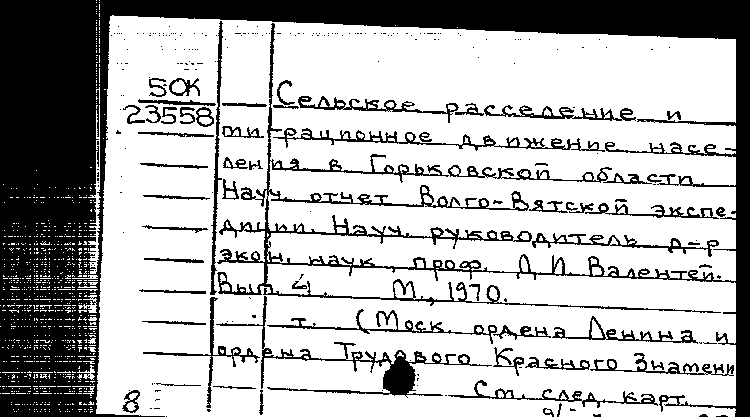 5OK
23558
Сельское расселение и
миграционное движение насе-
ления в Горьковской области.
Науч. отчет Волго-Вятской экспе-
диции. Науч. руководитель д-р
экон. наук, проф. Д. И. Валентей.
Вып. 4. М., 1970.
т. (Моск. ордена Ленина и
ордена Трудового Красного Знамени
См. след. карт.
8